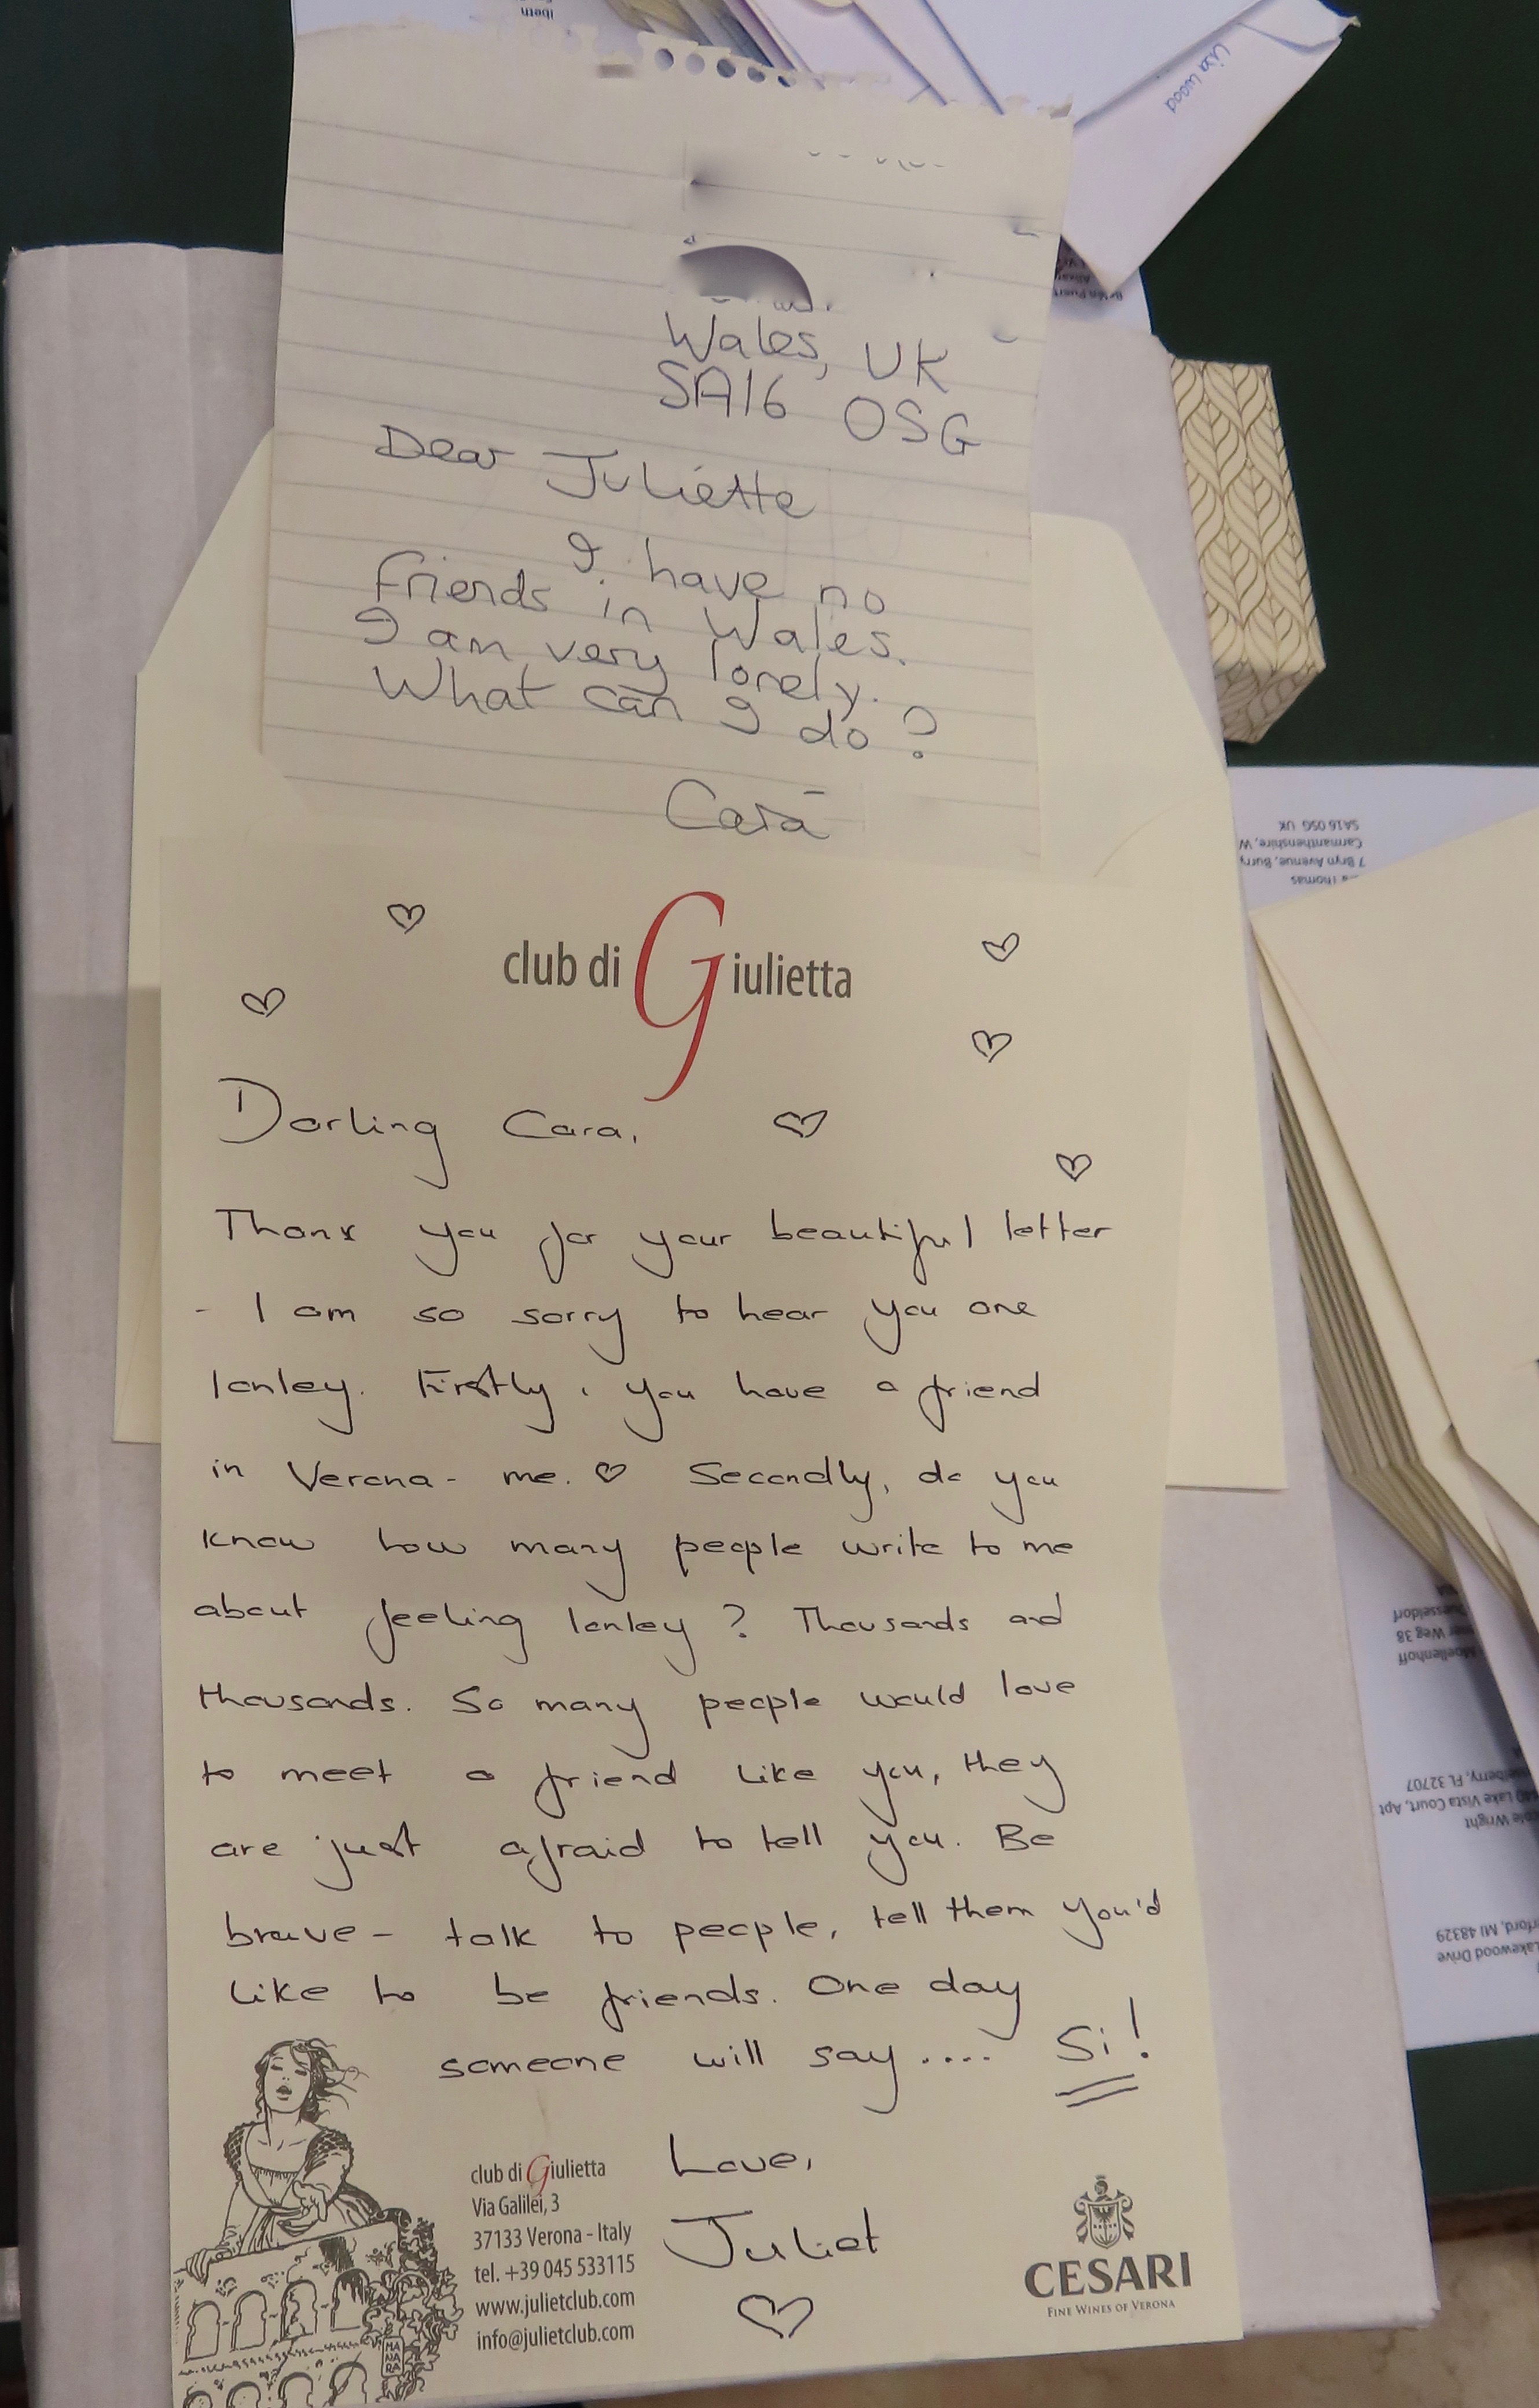 Lisa Wood
Wales, UK
SA16 0SG
Dear Juliette
I have no
friends in Wales.
I am very lonely.
What can I do?
Cara
club di Giulietta
Darling Cara,
Thank you for your beautiful letter
- I am so sorry to hear you are
lonley. Firstly, you have a friend
in Verona - me. ♡ Secondly, do you
know how many people write to me
about feeling lonley? Thousands and
thousands. So many people would love
to meet a friend like you, they
are just afraid to tell you. Be
brave - talk to people, tell them you'd
like to be friends. One day
someone will say.... Si!
Love,
Juliet
club di Giulietta
Via Galilei, 3
37133 Verona - Italy
tel. +39 045 533115
www.julietclub.com
info@julietclub.com
MA
NA
RA
CESARI
FINE WINES OF VERONA
Thomas
7 Bryn Avenue, Burry
Carmarthenshire, W
SA16 0SG UK
Moellenhoff
Weg 38
Wright
Lake Vista Court, Apt
FL 32707
Lakewood Drive
MI 48329